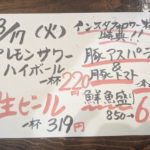 3/17 (火)
レモンサワー
ハイボール
一杯 220円
生ビール
一杯 319円
インスタフォロワー
豚アスパラ
&
豚トマト
鮮魚盛り
850→6